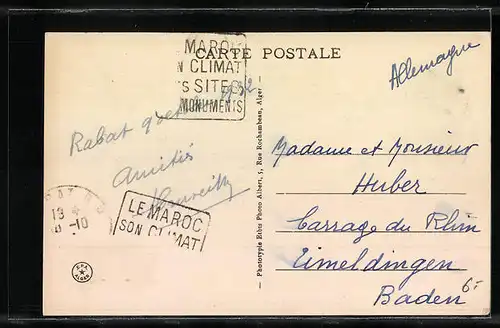 CARTE POSTALE
MAROC
N CLIMAT
S SITES
MONUMENTS
Allemagne
Rabat
Amitiés
LE MAROC
SON CLIMAT
13
-10
— Phototypie Etbts Photo Albert, 5, Rue Rochambeau, Alger —
Madame et Monsieur
Huber
barrage du Rhin
Eimeldingen
Baden
6-